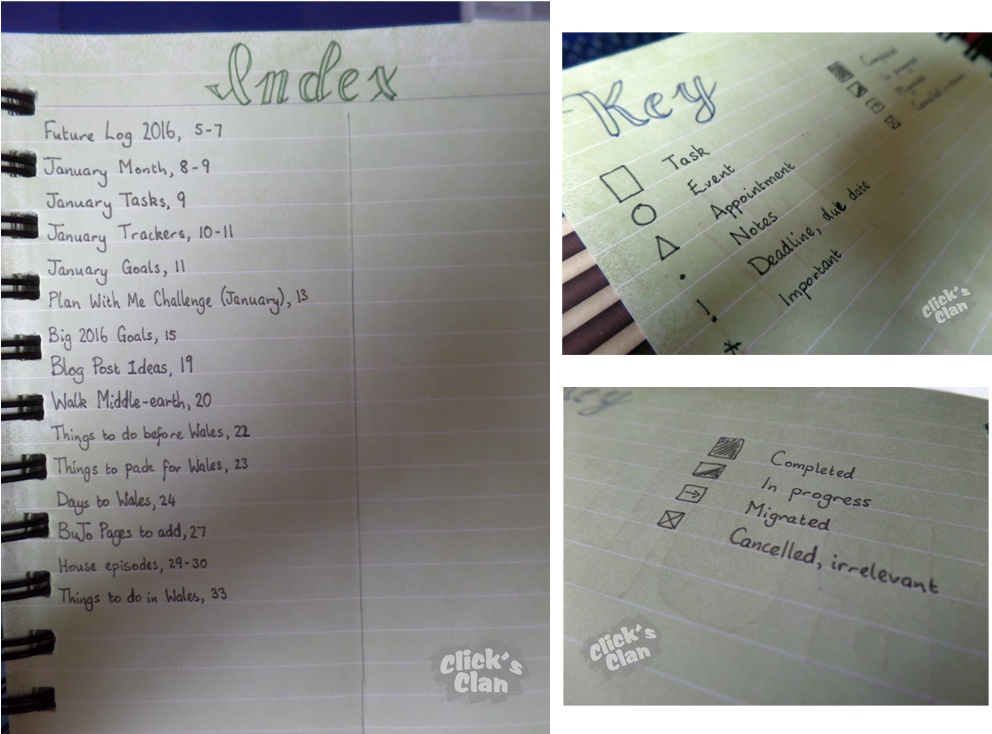 Index
Future Log 2016, 5-7
January Month, 8-9
January Tasks, 9
January Trackers, 10-11
January Goals, 11
Plan With Me Challenge (January), 13
Big 2016 Goals, 15
Blog Post Ideas, 19
Walk Middle-earth, 20
Things to do before Wales, 22
Things to pack for Wales, 23
Days to Wales, 24
BuJo Pages to add, 27
House episodes, 29-30
Things to do in Wales, 33
Click's
Clan
Key
Task
Event
Appointment
Notes
Deadline, due date
! Important
*
Completed
In progress
Migrated
Cancelled, irrelevant
Click's
Clan
ey
Completed
In progress
Migrated
Cancelled, irrelevant
Click's
Clan